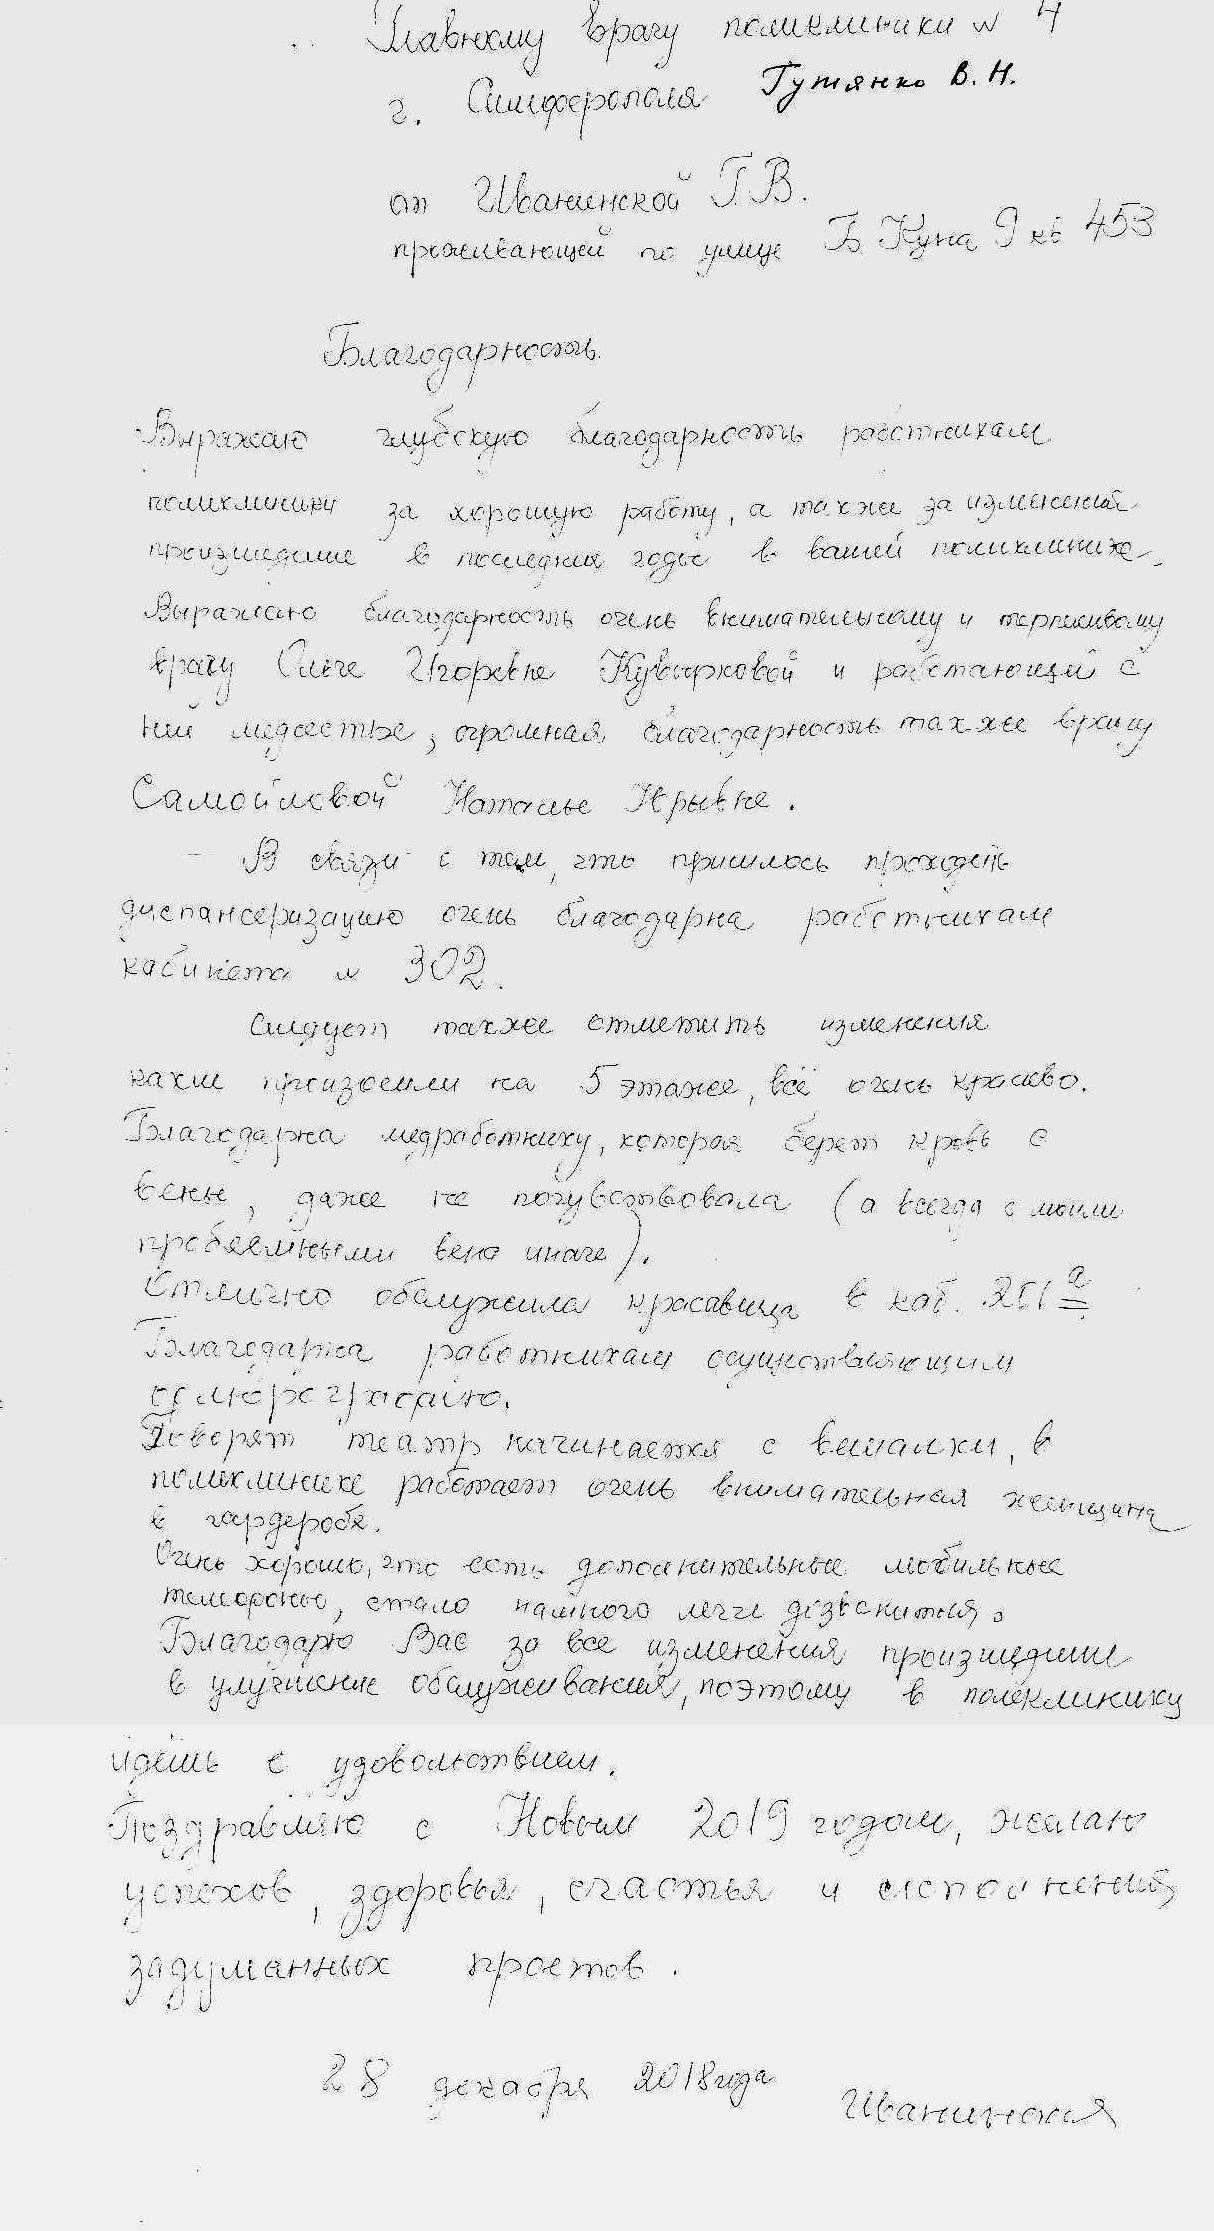 Главному врачу поликлиники N 4
г. Симферополя Гутянко В.Н.
от Иванинской Г.В.
проживающей по улице Б. Куна 9 кв 453
Благодарность.
Выражаю глубокую благодарность работникам
поликлиники за хорошую работу, а также за изменения
произшедшие в последние годы в вашей поликлинике.
Выражаю благодарность очень внимательному и терпеливому
врачу Ольге Игоревне Кувырковой и работающей с
ней медсестре, огромная благодарность также врачу
Самойловой Наталье Юрьевне.
В связи с тем, что пришлось проходить
диспансеризацию очень благодарна работникам
кабинета N 302.
Следует также отметить изменения
какие произошли на 5 этаже, всё очень красиво.
Благодарна медработнику, которая берет кровь с
вены, даже не почувствовала (а всегда с моими
проблемными вена иначе).
Отлично обслужила красавица в каб. 201 а
Благодарна работникам осуществляющим
флюорографию.
Говорят театр начинается с вешалки, в
поликлинике работает очень внимательная женщина
в гардеробе.
Очень хорошо, что есть дополнительные мобильные
телефоны, стало намного легче дозвонится.
Благодарю Вас за все изменения произшедшие
в улучшение обслуживания, поэтому в поликлинику
идёшь с удовольствием.
Поздравляю с Новым 2019 годом, желаю
успехов, здоровья, счастья и исполнений
задуманных проетов.
28 декабря 2018 года Иванинская